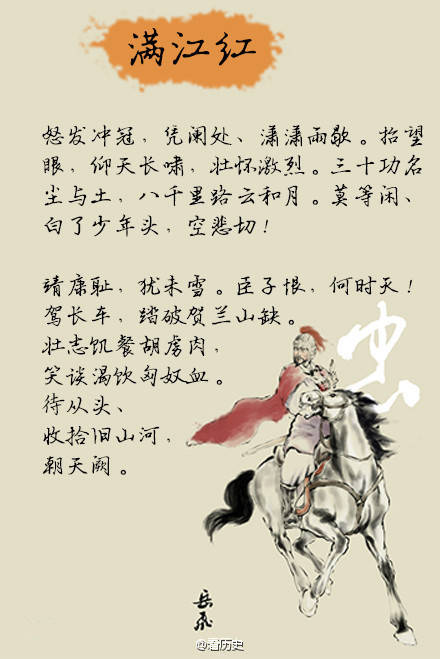 满江红
怒发冲冠，凭阑处、潇潇雨歇。抬望
眼，仰天长啸，壮怀激烈。三十功名
尘与土，八千里路云和月。莫等闲、
白了少年头，空悲切！
靖康耻，犹未雪。臣子恨，何时灭！
驾长车，踏破贺兰山缺。
壮志饥餐胡虏肉，
笑谈渴饮匈奴血。
待从头、
收拾旧山河，
朝天阙。
忠
岳飞
@看历史